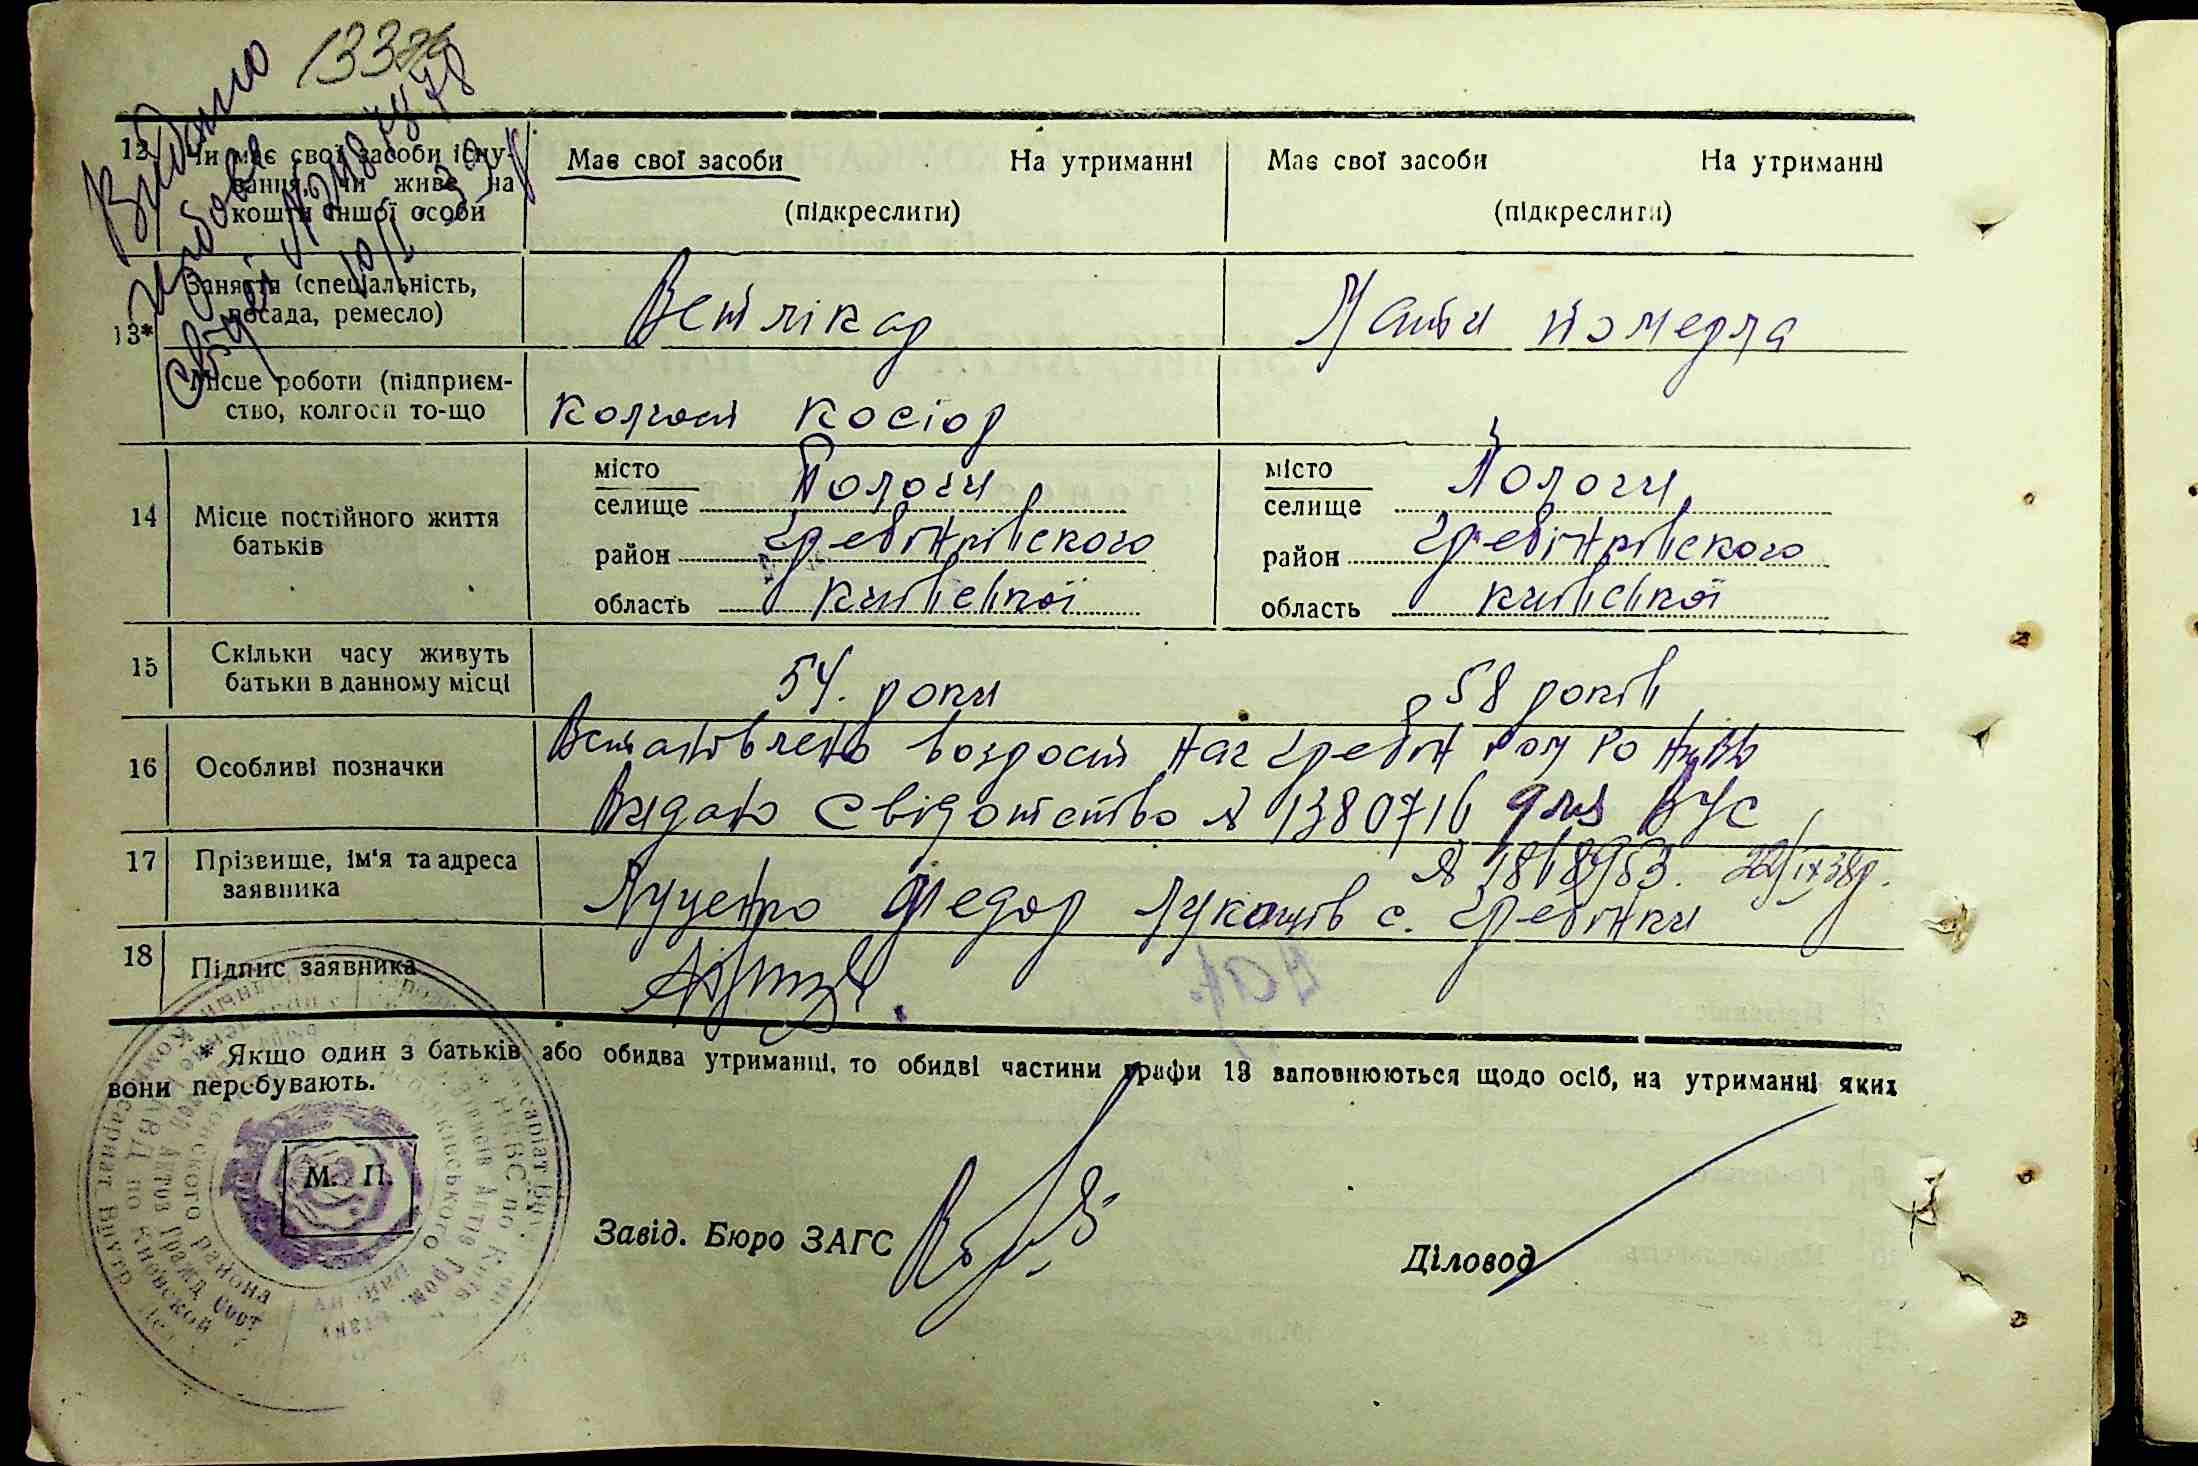 133
Видано
12 Чи має свої засоби існування, чи живе на кошти іншої особи
Має свої засоби На утриманні
(підкреслити)
Має свої засоби На утриманні
(підкреслити)
13*
Заняття (спеціальність, посада, ремесло)
Ветлікар
Мати померла
Місце роботи (підприємство, колгосп то-що
колгосп Косіор
14 Місце постійного життя батьків
місто
селище Пологи
район Гребінківского
область Київської
місто
селище Пологи
район Гребінківского
область Київської
15 Скільки часу живуть батьки в данному місці
54. роки
58 років
16 Особливі позначки
Встановлено возрост
Видано свідотство № 1380716 для ВУС
№ 1818953. 22/IX 38р.
17 Прізвище, ім'я та адреса заявника
Луценко Федор Лукашів с. Гребінки
18 Підпис заявника
* Якщо один з батьків або обидва утриманці, то обидві частини графи 13 заповнюються щодо осіб, на утриманні яких
вони перебувають.
М. П.
Завід. Бюро ЗАГС
Діловод